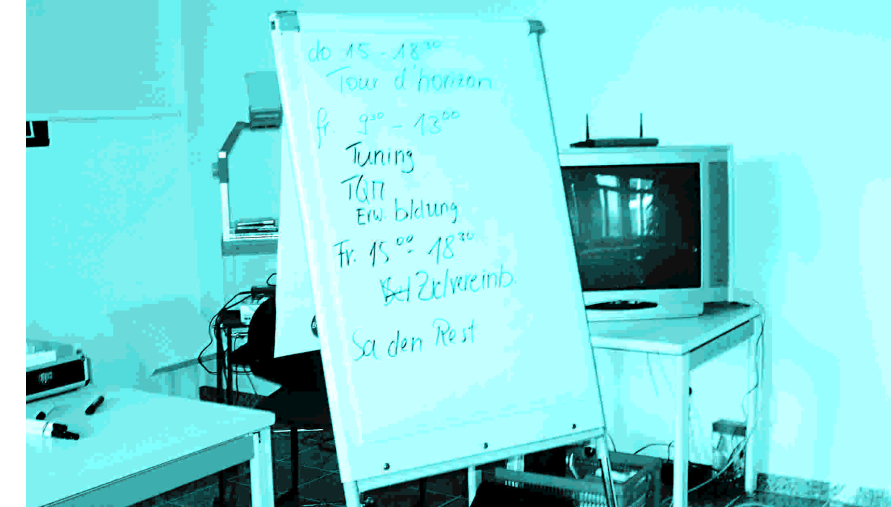 do 15 - 18³⁰
Tour d'horizon
fr. 9³⁰ - 13⁰⁰
Tuning
TQM
Erw. bildung
Fr. 15⁰⁰ - 18³⁰
Zielvereinb.
Sa den Rest